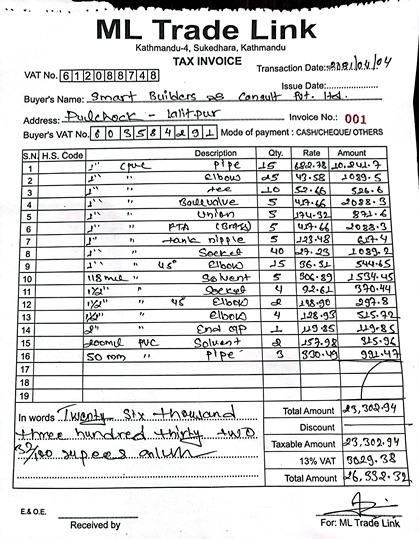 ML Trade Link
Kathmandu-4, Sukedhara, Kathmandu
TAX INVOICE
VAT No. 612088748
Transaction Date: 2081/04/04
Issue Date:
Buyer's Name: Smart Builders & Consult Pvt. Ltd.
Address: Pulchock - Lalitpur
Invoice No. 001
Buyer's VAT No. 603584291 Mode of payment : CASH/CHEQUE/ OTHERS
S.N. H.S. Code Description Qty. Rate Amount
1 1" CPVC Pipe 15 682.78 10,241.7
2 1" " Elbow 25 43.58 1089.5
3 1" " tee 10 52.66 526.6
4 1" " Ballvalve 5 417.66 2088.3
5 1" " Union 5 174.32 871.6
6 1" " FTA (Brass) 5 417.66 2088.3
7 1" " tank nipple 5 123.48 617.4
8 1" " Socket 40 27.23 1089.2
9 1" " 45° Elbow 15 36.31 544.65
10 118ml " Solvent 5 306.89 1534.45
11 1½" " Socket 4 92.61 370.44
12 1½" " 45° Elbow 2 148.90 297.8
13 1½" " Elbow 4 128.93 515.72
14 2" " End cap 1 119.85 119.85
15 200ml PVC Solvent 2 157.98 315.96
16 50 mm " Pipe 3 330.49 991.47
17
18
19
In words Twenty Six thousand
three hundred thirty two
32/100 rupees only
Total Amount 23,302.94
Discount
Taxable Amount 23,302.94
13% VAT 3029.38
Total Amount 26,332.32
E.& O.E.
Received by
For: ML Trade Link